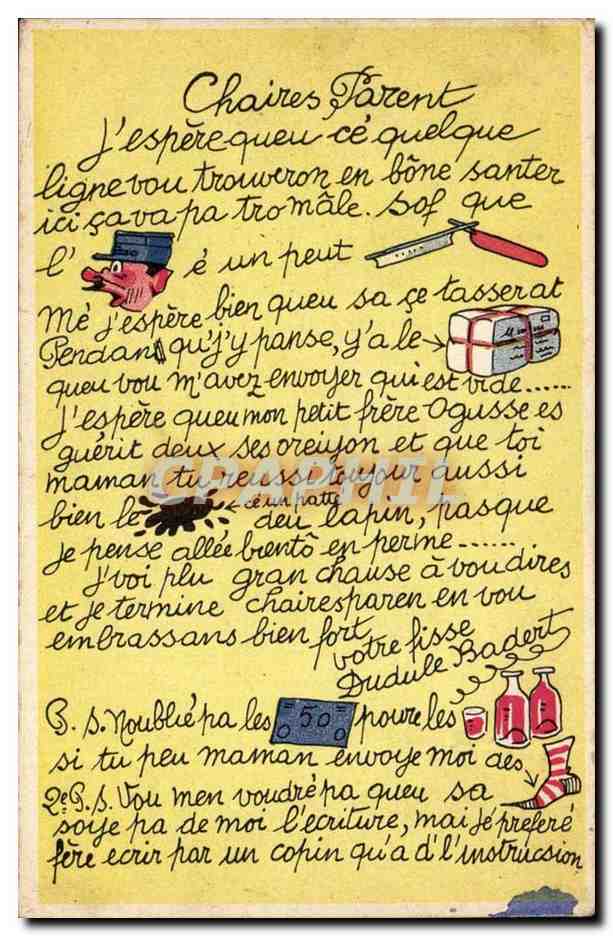 Chaires Parent
J'espère queu cé quelque
ligne vou trouveron en bône santer
ici ça va pa tro mâle. Sof que
l' é un peut
Mé j'espère bien queu sa çe tasserat
Pendant qu'j'y panse, y'a le
queu vou m'avez envoyer qui est vide......
J'espère queu mon petit frère Ogusse es
guérit deux ses oreiyon et que toi
maman tu reussi toujour aussi
bien le cé un patté deu lapin, pasque
je pense allée bientô en perme......
J'voi plu gran chause à vou dires
et je termine chairesparen en vou
embrassans bien fort
votre fisse
Dudule Badert
P.S. Noublié pa les 50 poure les
si tu peu maman envoye moi des
2e P.S. Vou men voudré pa queu sa
soye pa de moi l'ecriture, mai jé preferé
fère ecrir par un copin qu'a d'l'instrucsion
CPAPHIL